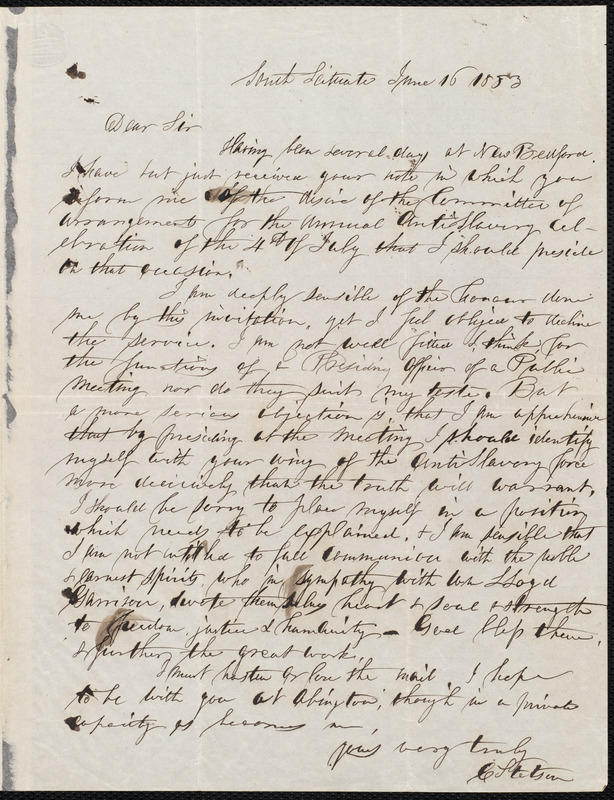 South Scituate June 16 1853
Dear Sir
Having been several days at New Bedford.
I have but just received your note in which you
inform me of the desire of the Committee of
arrangements for the annual AntiSlavery cel-
ebration of the 4th of July that I should preside
on that occasion.
I am deeply sensible of the honour done
me by this invitation, yet I feel obliged to decline
the service. I am not well fitted I think for
the functions of a Presiding Officer of a Public
Meeting nor do they suit my taste. But
a more serious objection is, that I am apprehensive
that by presiding at the meeting I should identify
myself with your wing of the AntiSlavery force
more decisively than the truth will warrant.
I should be sorry to place myself in a position
which needs to be explained, & I am sensible that
I am not entitled to full communion with the noble
& earnest spirits, who in sympathy with Wm Lloyd
Garrison, devote themselves heart & soul & strength
to freedom justice & humanity – God bless them,
& further the great work.
I must hasten or lose the mail. I hope
to be with you at Abington, though in a private
capacity as becomes me,
yours very truly
C Stetson